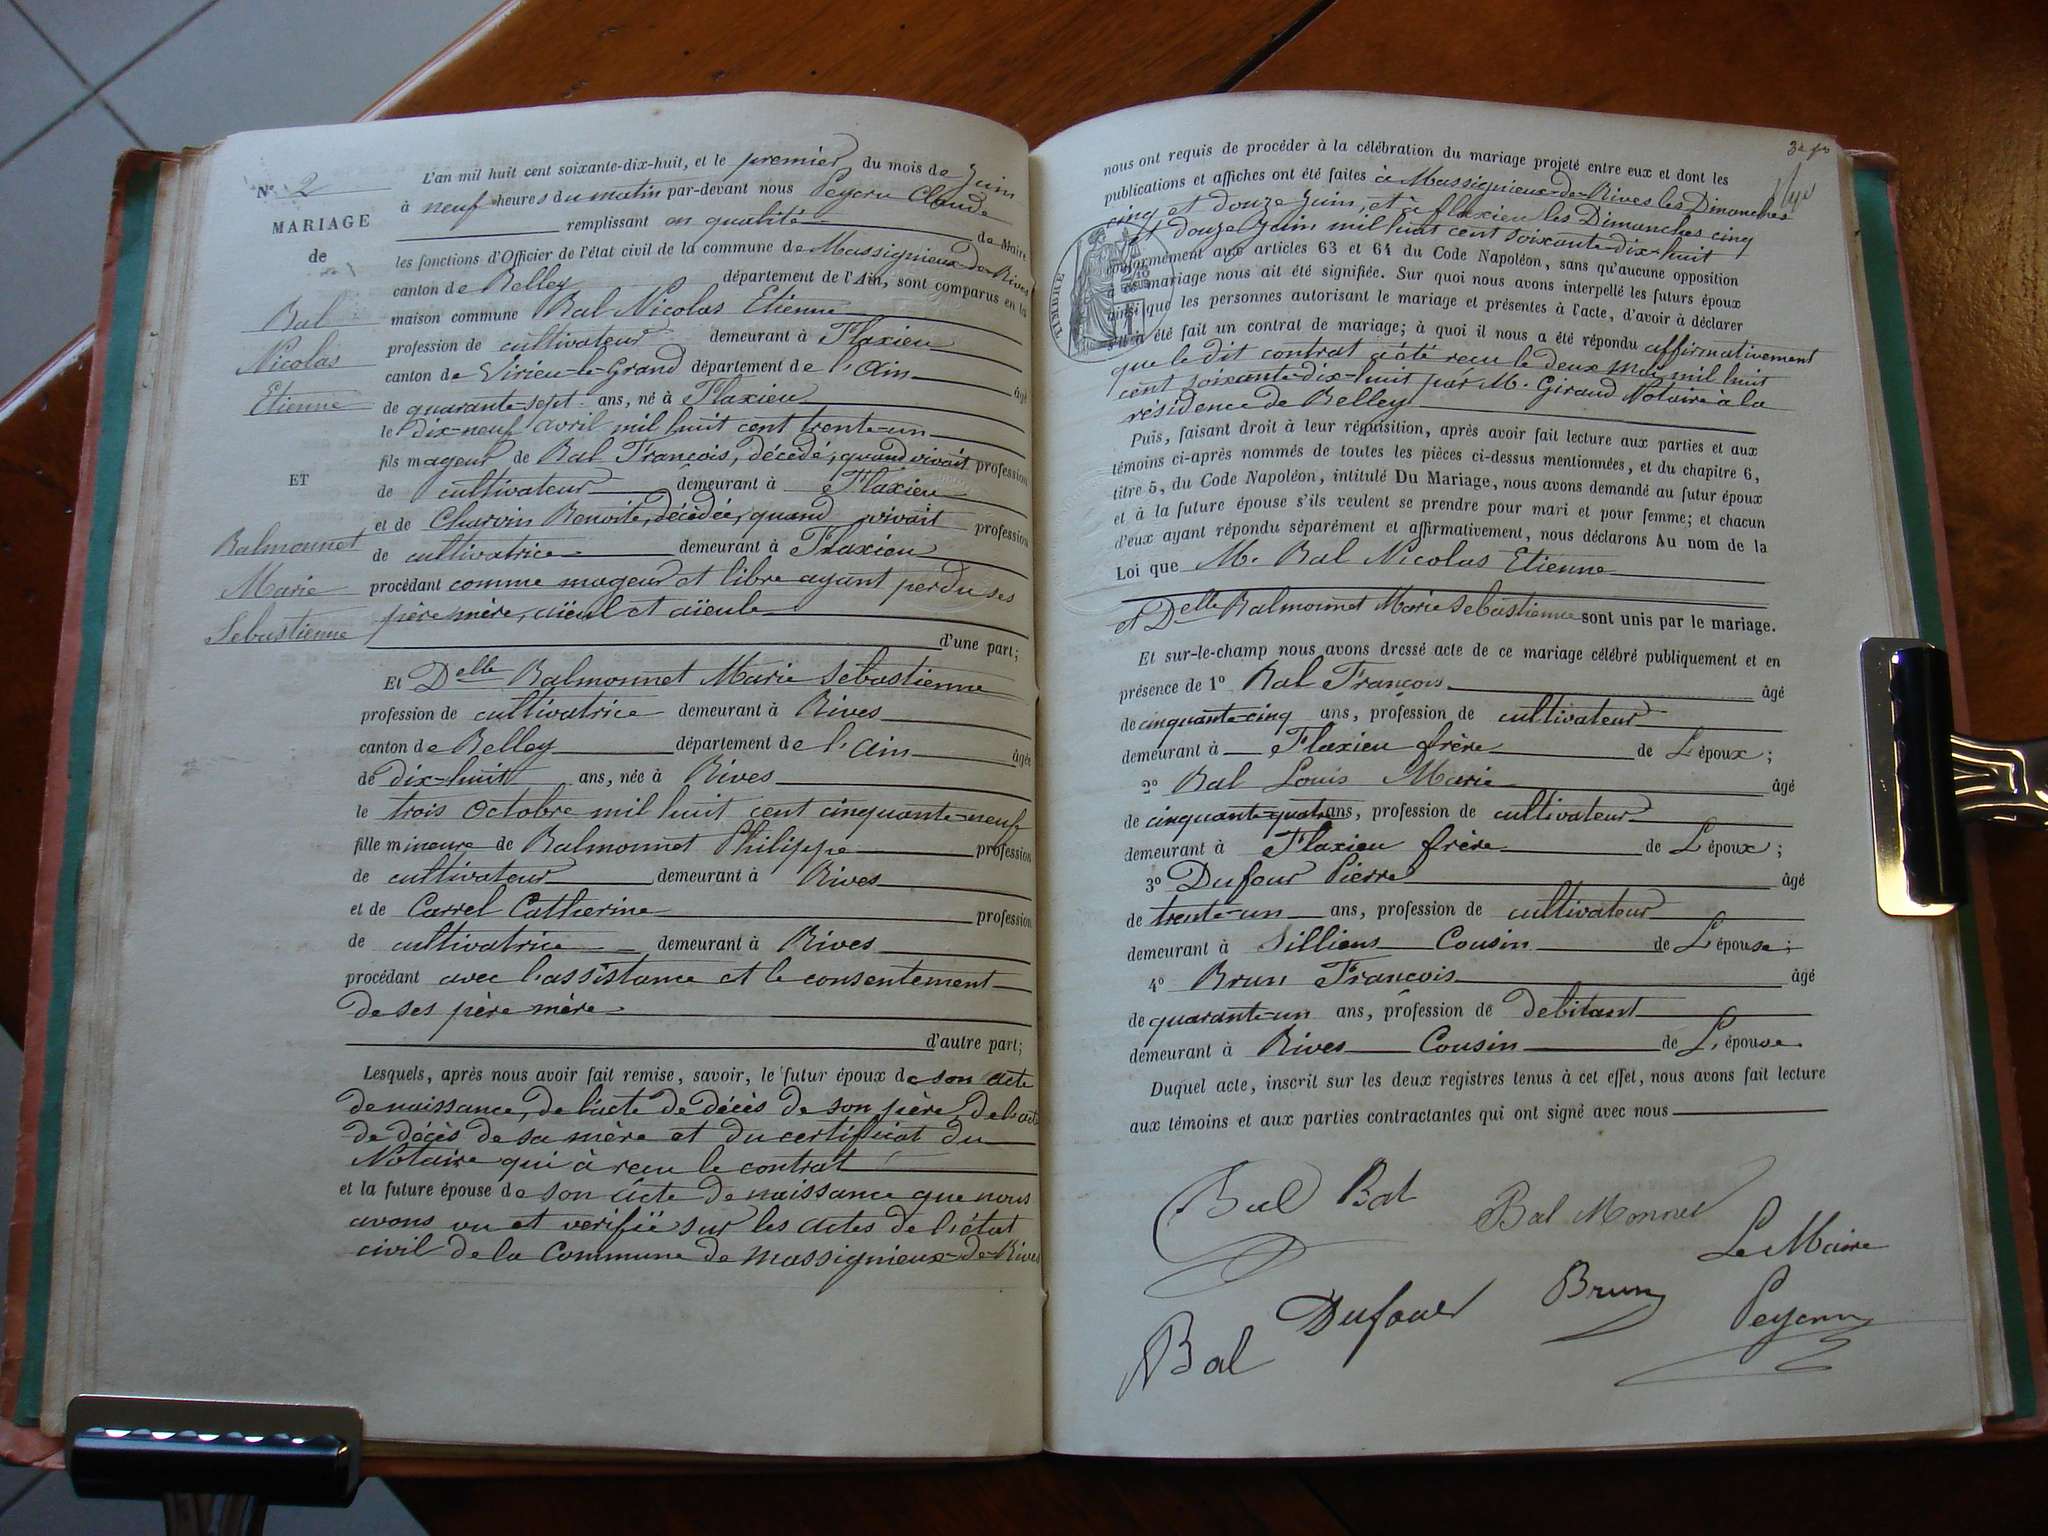 N° 2
MARIAGE
de
Bal
Nicolas
Etienne
ET
Balmonnet
Marie
Sébastienne
L'an mil huit cent soixante-dix-huit, et le premier du mois de Juin
à neuf heures du matin par-devant nous Peycru Claude
remplissant en qualité de Maire
les fonctions d'Officier de l'état civil de la commune de Massignieux-de-Rives
canton de Belley département de l'Ain, sont comparus en la
maison commune Bal Nicolas Etienne
profession de cultivateur demeurant à Flaxieu
canton de Virieu-le-Grand département de l'Ain âgé
de quarante-sept ans, né à Flaxieu
le dix-neuf avril mil huit cent trente-un
fils mageur de Bal François, décédé, quand vivait profession
de cultivateur demeurant à Flaxieu
et de Charvin Benoite, décédée, quand vivait profession
de cultivatrice demeurant à Flaxieu
procédant comme mageur et libre ayant perdu ses
père mère, aïeul et aïeule
d'une part;
Et Delle Balmonnet Marie Sébastienne
profession de cultivatrice demeurant à Rives
canton de Belley département de l'Ain âgée
de dix-huit ans, née à Rives
le trois Octobre mil huit cent cinquante-neuf
fille mineure de Balmonnet Philippe profession
de cultivateur demeurant à Rives
et de Carrel Catherine profession
de cultivatrice demeurant à Rives
procédant avec l'assistance et le consentement
de ses père mère
d'autre part;
Lesquels, après nous avoir fait remise, savoir, le futur époux de son acte
de naissance, de l'acte de décès de son père, de l'acte
de décès de sa mère et du certificat du
Notaire qui à recu le contrat
et la future épouse de son acte de naissance que nous
avons vu et vérifié sur les actes de l'état
civil de la Commune de Massignieux-de-Rives
nous ont requis de procéder à la célébration du mariage projeté entre eux et dont les
publications et affiches ont été faites à Massignieux-de-Rives les Dimanches
cinq et douze Juin, et à flaxieu les Dimanches cinq
et douze Juin mil huit cent soixante-dix-huit
TIMBRE
conformément aux articles 63 et 64 du Code Napoléon, sans qu'aucune opposition
à ce mariage nous ait été signifiée. Sur quoi nous avons interpellé les futurs époux
ainsi que les personnes autorisant le mariage et présentes à l'acte, d'avoir à déclarer
s'il a été fait un contrat de mariage; à quoi il nous a été répondu affirmativement
que le dit contrat a été recu le deux Mai mil huit
cent soixante-dix-huit par M. Giraud Notaire à la
résidence de Belley
Puis, faisant droit à leur réquisition, après avoir fait lecture aux parties et aux
témoins ci-après nommés de toutes les pièces ci-dessus mentionnées, et du chapitre 6,
titre 5, du Code Napoléon, intitulé Du Mariage, nous avons demandé au futur époux
et à la future épouse s'ils veulent se prendre pour mari et pour femme; et chacun
d'eux ayant répondu séparément et affirmativement, nous déclarons Au nom de la
Loi que M. Bal Nicolas Etienne
et Delle Balmonnet Marie Sébastienne sont unis par le mariage.
Et sur-le-champ nous avons dressé acte de ce mariage célébré publiquement et en
présence de 1° Bal François âgé
de cinquante-cinq ans, profession de cultivateur
demeurant à Flaxieu frère de L'époux;
2° Bal Louis Marie âgé
de cinquante-quatre ans, profession de cultivateur
demeurant à Flaxieu frère de L'époux;
3° Dufour Pierre âgé
de trente-un ans, profession de cultivateur
demeurant à Silliens Cousin de L'épouse;
4° Brun François âgé
de quarante-un ans, profession de debitant
demeurant à Rives Cousin de L'épouse
Duquel acte, inscrit sur les deux registres tenus à cet effet, nous avons fait lecture
aux témoins et aux parties contractantes qui ont signé avec nous
Bal Bal Bal Monnet
Le Maire
Bal Dufour Brun Peycru